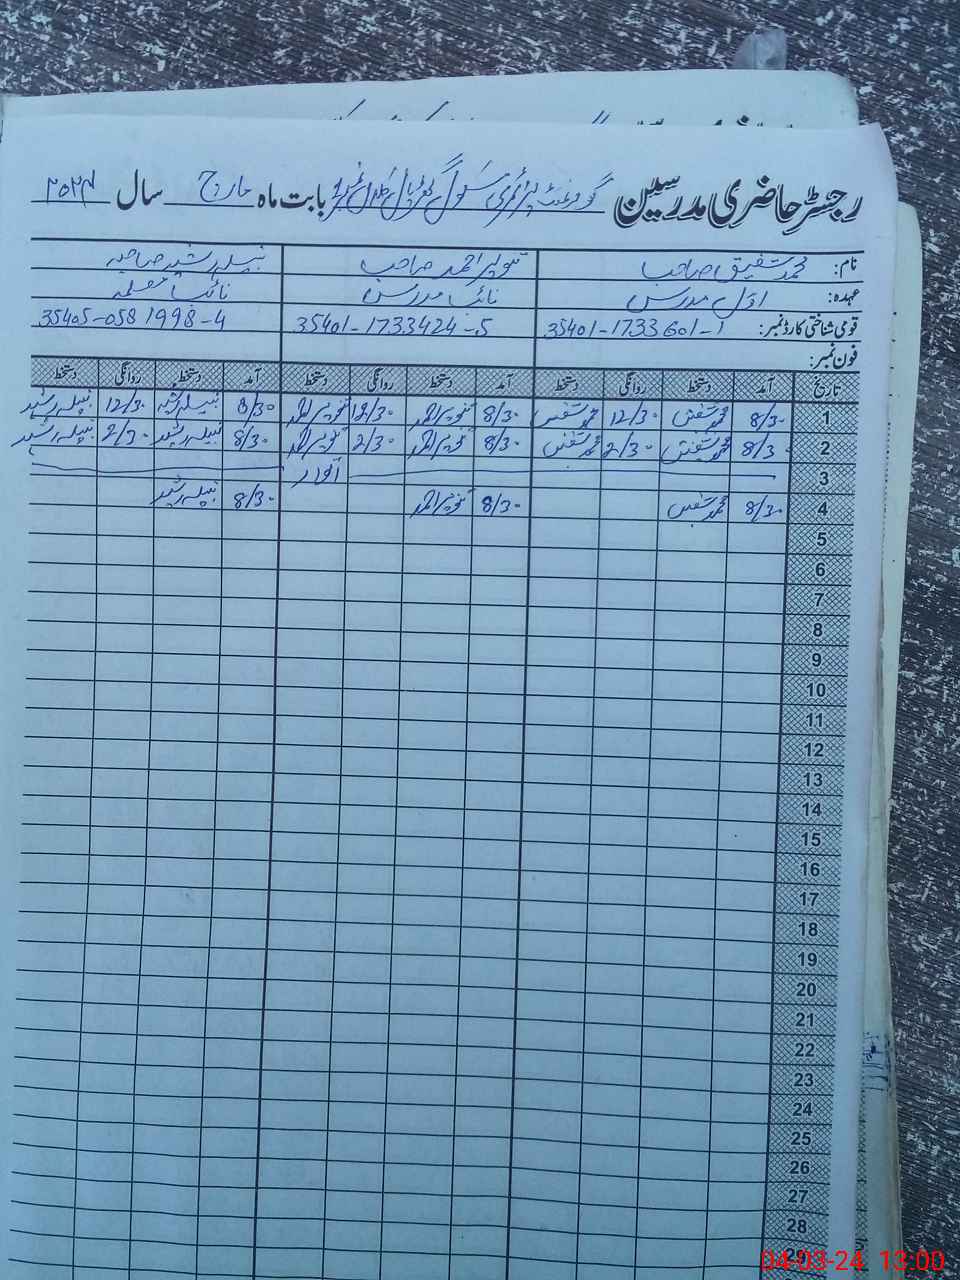 رجسٹر حاضری مدرسین گورنمنٹ پرائمری سکول بابت ماہ مارچ سال ۲۰۲۴
نام: محمد شفیق صاحب تنویر احمد صاحب نبیلہ رشید صاحبہ
عہدہ: اول مدرس نائب مدرس نائب معلمہ
قومی شناختی کارڈ نمبر: 35401-1733601-1 35401-1733424-5 35405-0581998-4
فون نمبر:
تاریخ آمد دستخط روانگی دستخط آمد دستخط روانگی دستخط آمد دستخط روانگی دستخط
1 8/30 محمد شفیق 12/30 محمد شفیق 8/30 تنویر احمد 12/30 تنویر احمد 8/30 نبیلہ رشید 12/30 نبیلہ رشید
2 8/30 محمد شفیق 2/30 محمد شفیق 8/30 تنویر احمد 2/30 تنویر احمد 8/30 نبیلہ رشید 2/30 نبیلہ رشید
3 اتوار
4 8/30 محمد شفیق 8/30 تنویر احمد 8/30 نبیلہ رشید
5
6
7
8
9
10
11
12
13
14
15
16
17
18
19
20
21
22
23
24
25
26
27
28
29
04-03-24 13:00